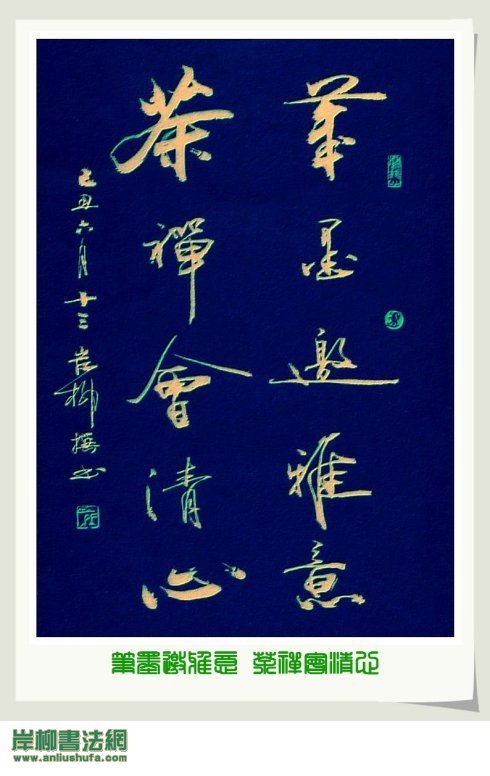 筆墨邀雅意
茶禪會清心
己丑六月十三岸柳撰书
筆墨邀雅意 茶禅會清心
岸柳書法網
www.anliushufa.com